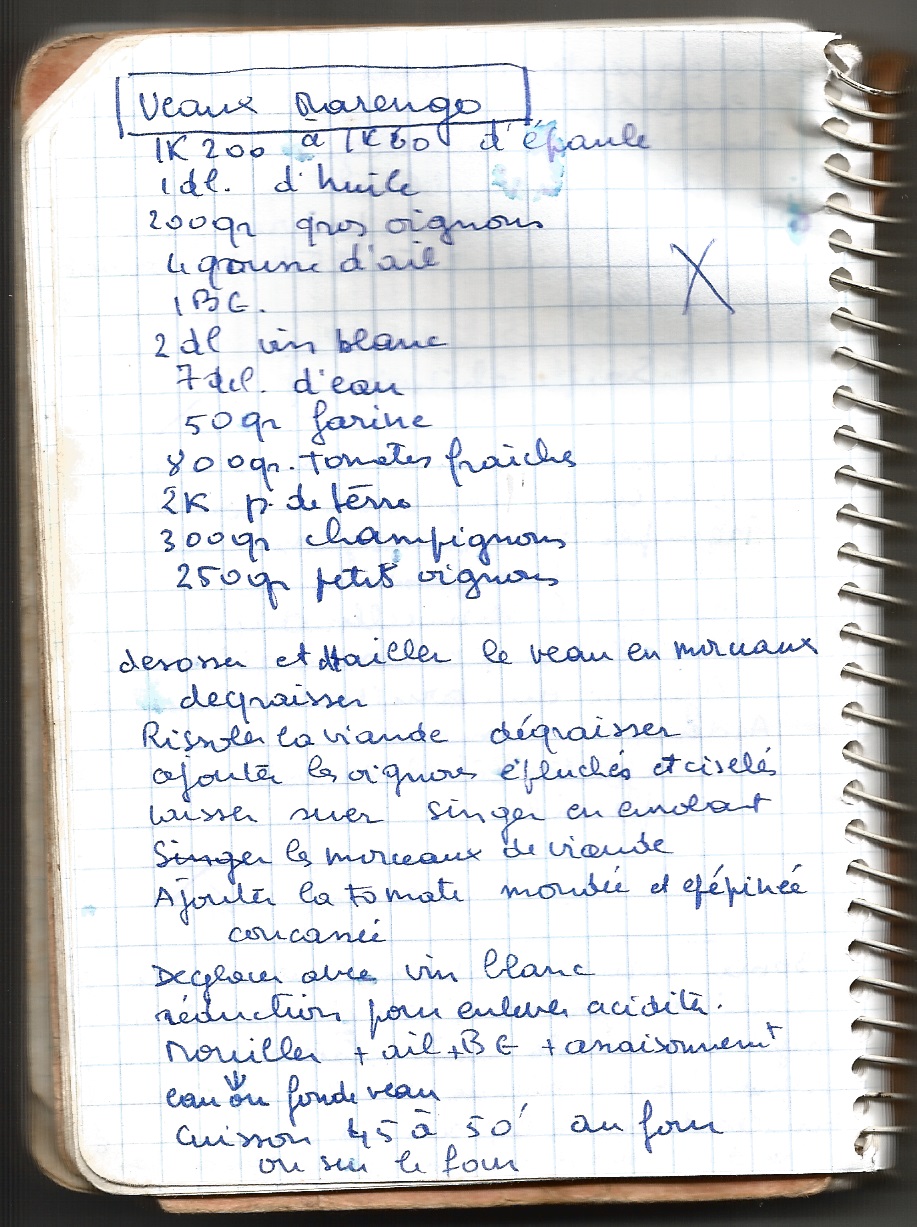 Veaux Marengo
1K200 à 1K60 d'épaule
1 dl. d'huile
200gr gros oignons
4 gousse d'ail
1 BG.
2 dl vin blanc
7 dcl. d'eau
50 gr farine
800gr. tomates fraiches
2K p. de terre
300gr champignons
250gr petits oignons
X
desosser et détailler le veau en morceaux
degraisser
Rissoler la viande dégraisser
ajouter les oignons épluchés et ciselés
laisser suer singer en enrobant
Singer les morceaux de viande
Ajouter la tomate mondée et épépinée
concassée
Deglacer avec vin blanc
réduction pour enlever acidité.
Mouiller + ail + BG + assaisonnement
eau ou fond de veau
Cuisson 45 à 50' au four
ou sur le four